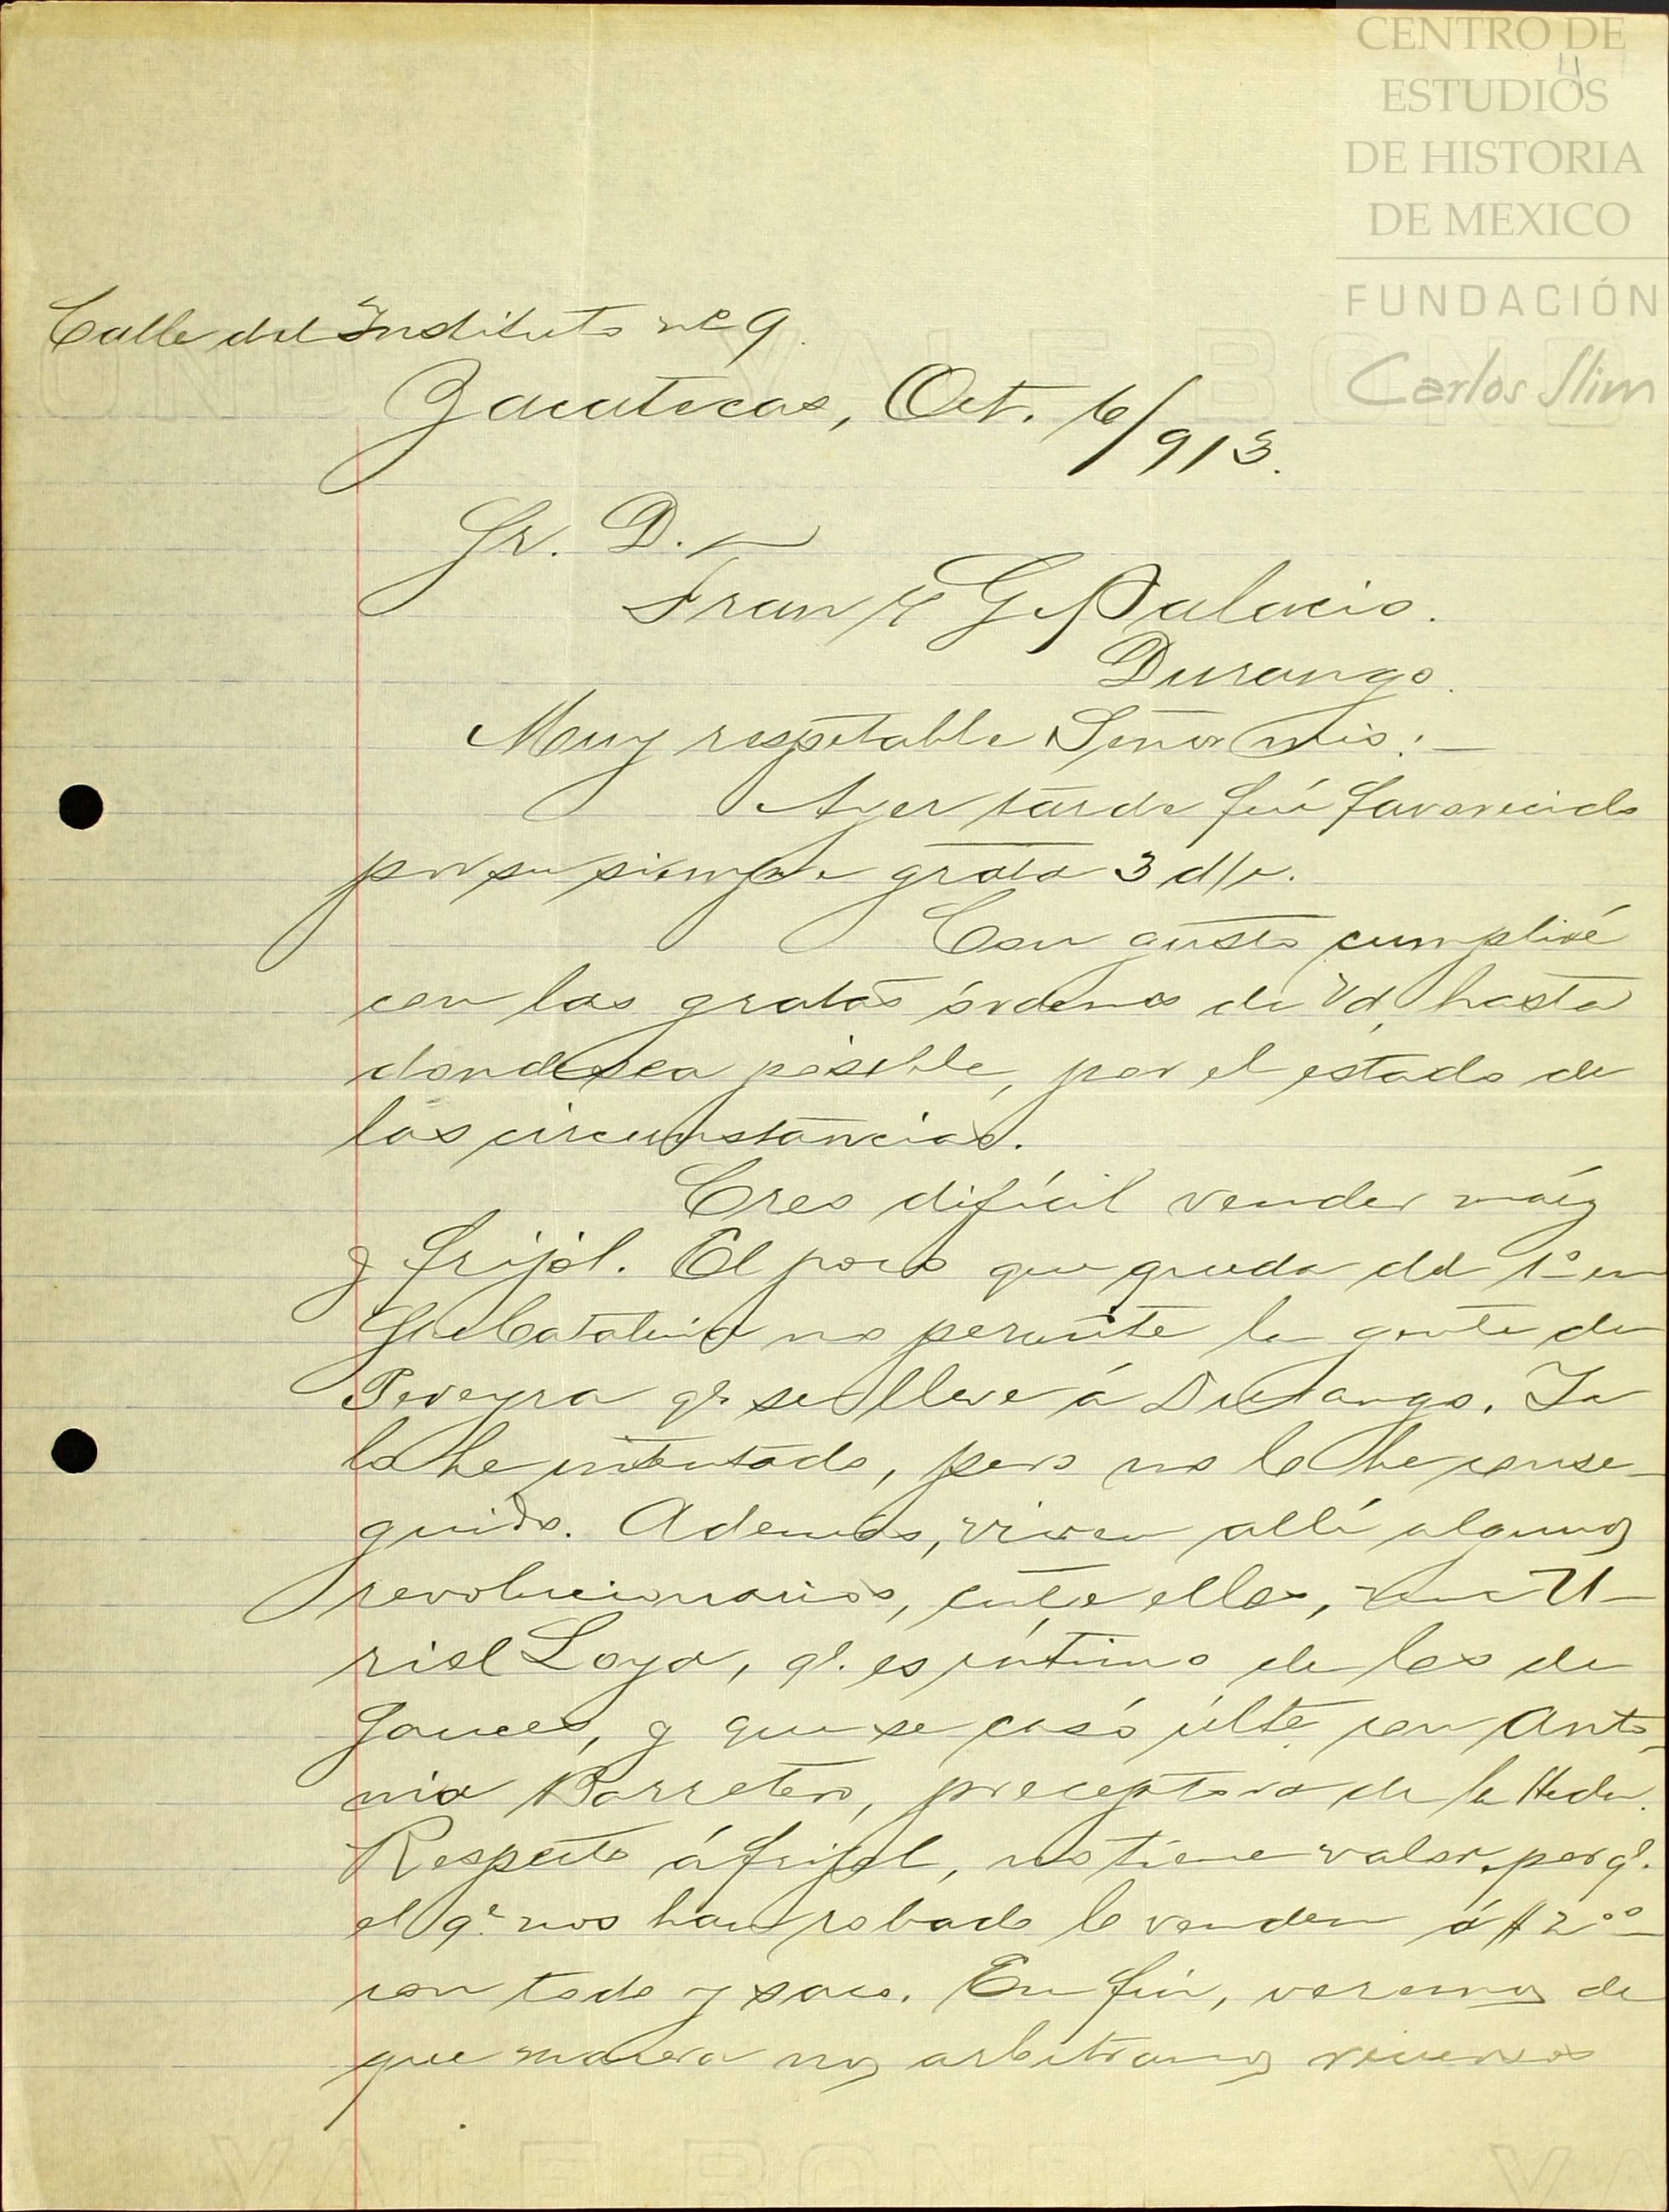 CENTRO DE
ESTUDIOS
DE HISTORIA
DE MEXICO
FUNDACIÓN
Carlos Slim
Calle del Instituto nº 9.
Zacatecas, Oct. 6/913.
Sr. D.
Fran G. Palacio.
Durango.
Muy respetable Señor mio:—
Ayer tarde fuí favorecido
por su siempre grata 3 d/p.
Con gusto cumpliré
con las gratas órdenes de Vd, hasta
donde sea posible, por el estado de
las circunstancias.
Creo difícil vender maíz
y frijol. El poco que queda del 1º en
Sta Catalina no permite la gente de
Pereyra qe. se lleve á Durango. Ya
lo he intentado, pero no lo he conse-
guido. Además, viven allí algunos
revolucionarios, entre ellos, un U-
riel Loya, qe. es íntimo de los de
Gances, y que se casó últe. con Anto-
nia Barretero, preceptora de la Hda.
Respecto á frijol, no tiene valor, porqe.
el qe. nos han robado lo venden á $2°°
con todo y saco. En fin, veremos de
que manera nos arbitramos recursos
YALE BOND